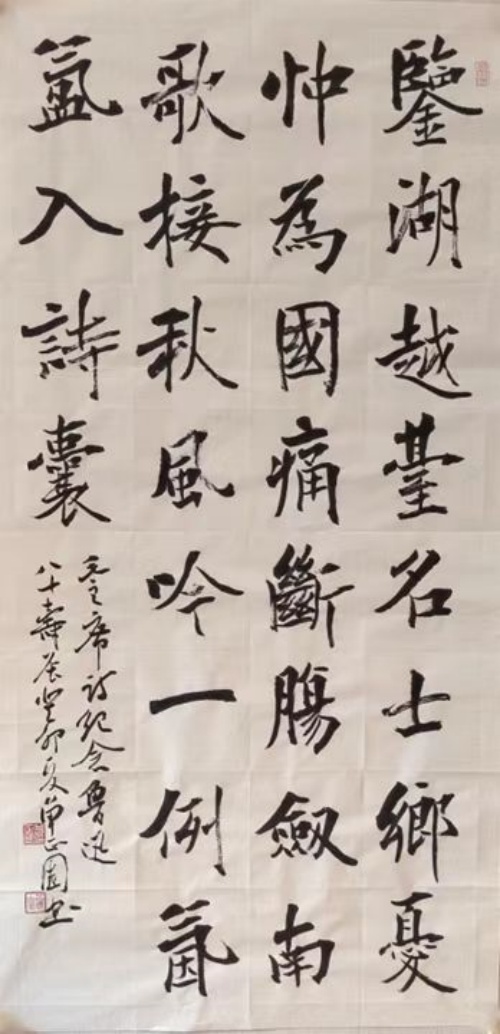 鑒湖越臺名士鄉憂
忡為國痛斷腸劔南
歌接秋風吟一例氤
氳入詩囊
毛主席詩紀念魯迅
八十壽辰癸卯夏正國書